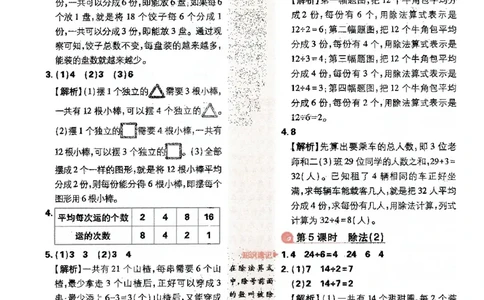 份,一共可以分成6份,即能放6盘,如果每6
个放1盘,就是将18个饺子每6个分成1
份,一共可以分成3份,即能放3盘。通过观
察可知,饺子总数不变,每盘装的越来越多,
能装的盘数就越来越少。
3.(1)4 (2)3 (3)6
【解析】(1)摆1个独立的 需要3根小棒,
一共有12根小棒,可以摆4个独立的 。
(2)摆1个独立的 需要4根小棒,一共有
12根小棒,可以摆3个独立的 。(3)全部
摆成2个一样的图形,就是将12根小棒平均
分成2份,则每份能分得6根小棒,即摆每个
图形用6根小棒。
4. 平均每次运的个数 2 4 8 16
运的次数 8 4 2 1
5.(1)3 (2)3 4
【解析】一共有21个山楂,每串需要6个山
楂,最少拿走3个山楂后,正好可以穿成3
串;最少添上6-3=3(个)山楂后,又能穿成
知识速记
在除法算式
中,除号前面
的数叫被除
成2份,每份有6个,用除法算式表示是
12÷2=6;第二幅题图,把12个牛角包平均
分成3份,每份有4个,用除法算式表示是
12÷3=4;第三幅题图,把12个牛角包平均
分成4份,每份有3个,用除法算式表示是
12÷4=3;第四幅题图,把12个牛角包平均
分成6份,每份有2个,用除法算式表示是
12÷6=2。
4.8
【解析】先算出要乘车的总人数,即3位老
师和二(3)班29位同学的人数之和,29+3=
32(人)。已知租了4辆相同的车正好坐
满,求每辆车能载客几人,就是把32人平均
分成4份,求每份有几人,用除法计算,列式
计算为32÷4=8(人)。
第5课时 除法(2)
1.4 24÷6=4 24 6 4
2.(1)7 14÷2=7
(2)2 14÷7=2
【解析】(1)一共有14个甜甜圈,每2个装